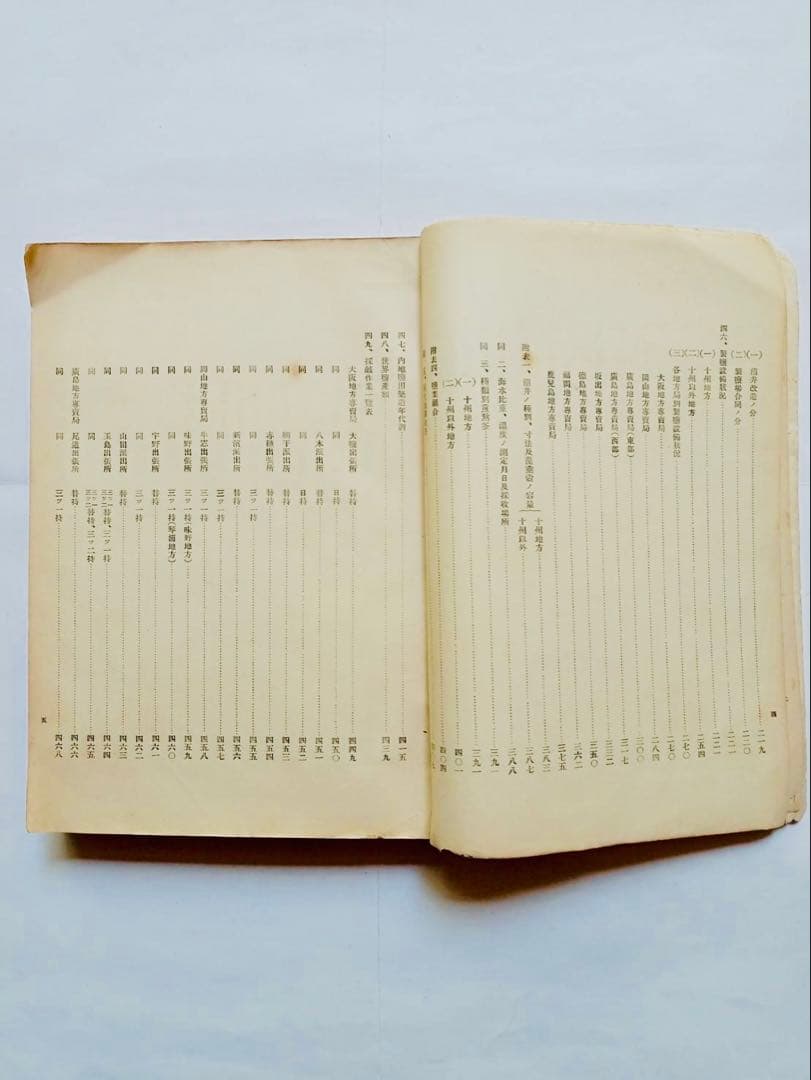 (一) 溝井改造ノ分 二一九
(二) 製鹽場合同ノ分 二二〇
四六、製鹽設備狀況 二二一
(一) 十州地方 二五四
(二) 十州以外地方 二七〇
(三) 各地方局別製鹽設備狀況 二七〇
大阪地方專賣局 二八四
岡山地方專賣局 三〇〇
廣島地方專賣局(東部) 三一七
廣島地方專賣局(西部) 三三二
坂出地方專賣局 三五〇
德島地方專賣局 三六二
福岡地方專賣局 三七五
鹿兒島地方專賣局 三八三
十州地方 三八七
十州以外 三八八
同 二、海水比重、溫度ノ測定月日及採收場所 三九一
同 三、種類別蒸熬釜 三九一
附表四、鹽業組合
(一) 十州地方 四〇一
(二) 十州以外地方 四〇四
四
四七、內地鹽田築造年代調 四一五
四八、世界鹽產額 四三九
四九、採鹹作業一覽表
大阪地方專賣局 大鹽出張所 替持 四四九
同 同 日持 四五〇
同 八木派出所 替持 四五一
同 同 日持 四五二
同 網干派出所 替持 四五三
同 赤穗出張所 替持 四五四
同 同 三ツ一持 四五五
同 新濱派出所 替持 四五六
同 同 三ツ一持 四五七
岡山地方專賣局 牛窓出張所 三ツ一持 四五八
同 味野出張所 三ツ一持(味野地方) 四五九
同 同 三ツ一持(琴浦地方) 四六〇
同 宇野出張所 替持 四六一
同 同 三ツ一持 四六二
同 山田派出所 替持 四六三
同 玉島出張所 三ツ一替持、三ツ一持 四六四
同 同 三ツ一替持、三ツ二持 四六五
廣島地方專賣局 尾道出張所 替持 四六六
同 同 三ツ一持 四六八
五